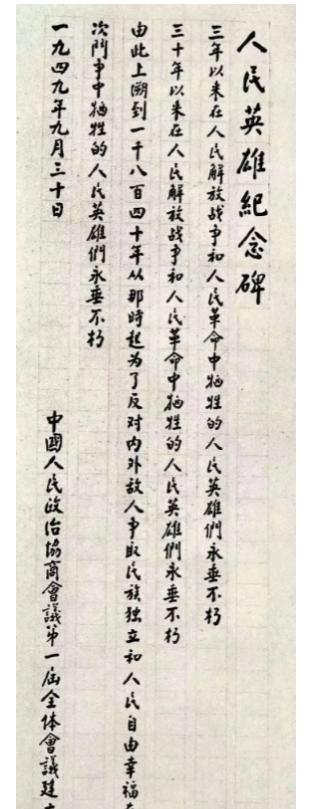 人民英雄紀念碑
三年以来在人民解放战争和人民革命中牺牲的人民英雄們永垂不朽
三十年以来在人民解放战争和人民革命中牺牲的人民英雄們永垂不朽
由此上溯到一千八百四十年从那時起为了反对内外敌人争取民族独立和人民自由幸福在
次鬥争中牺牲的人民英雄們永垂不朽
一九四九年九月三十日
中國人民政治協商會議第一屆全体會議建